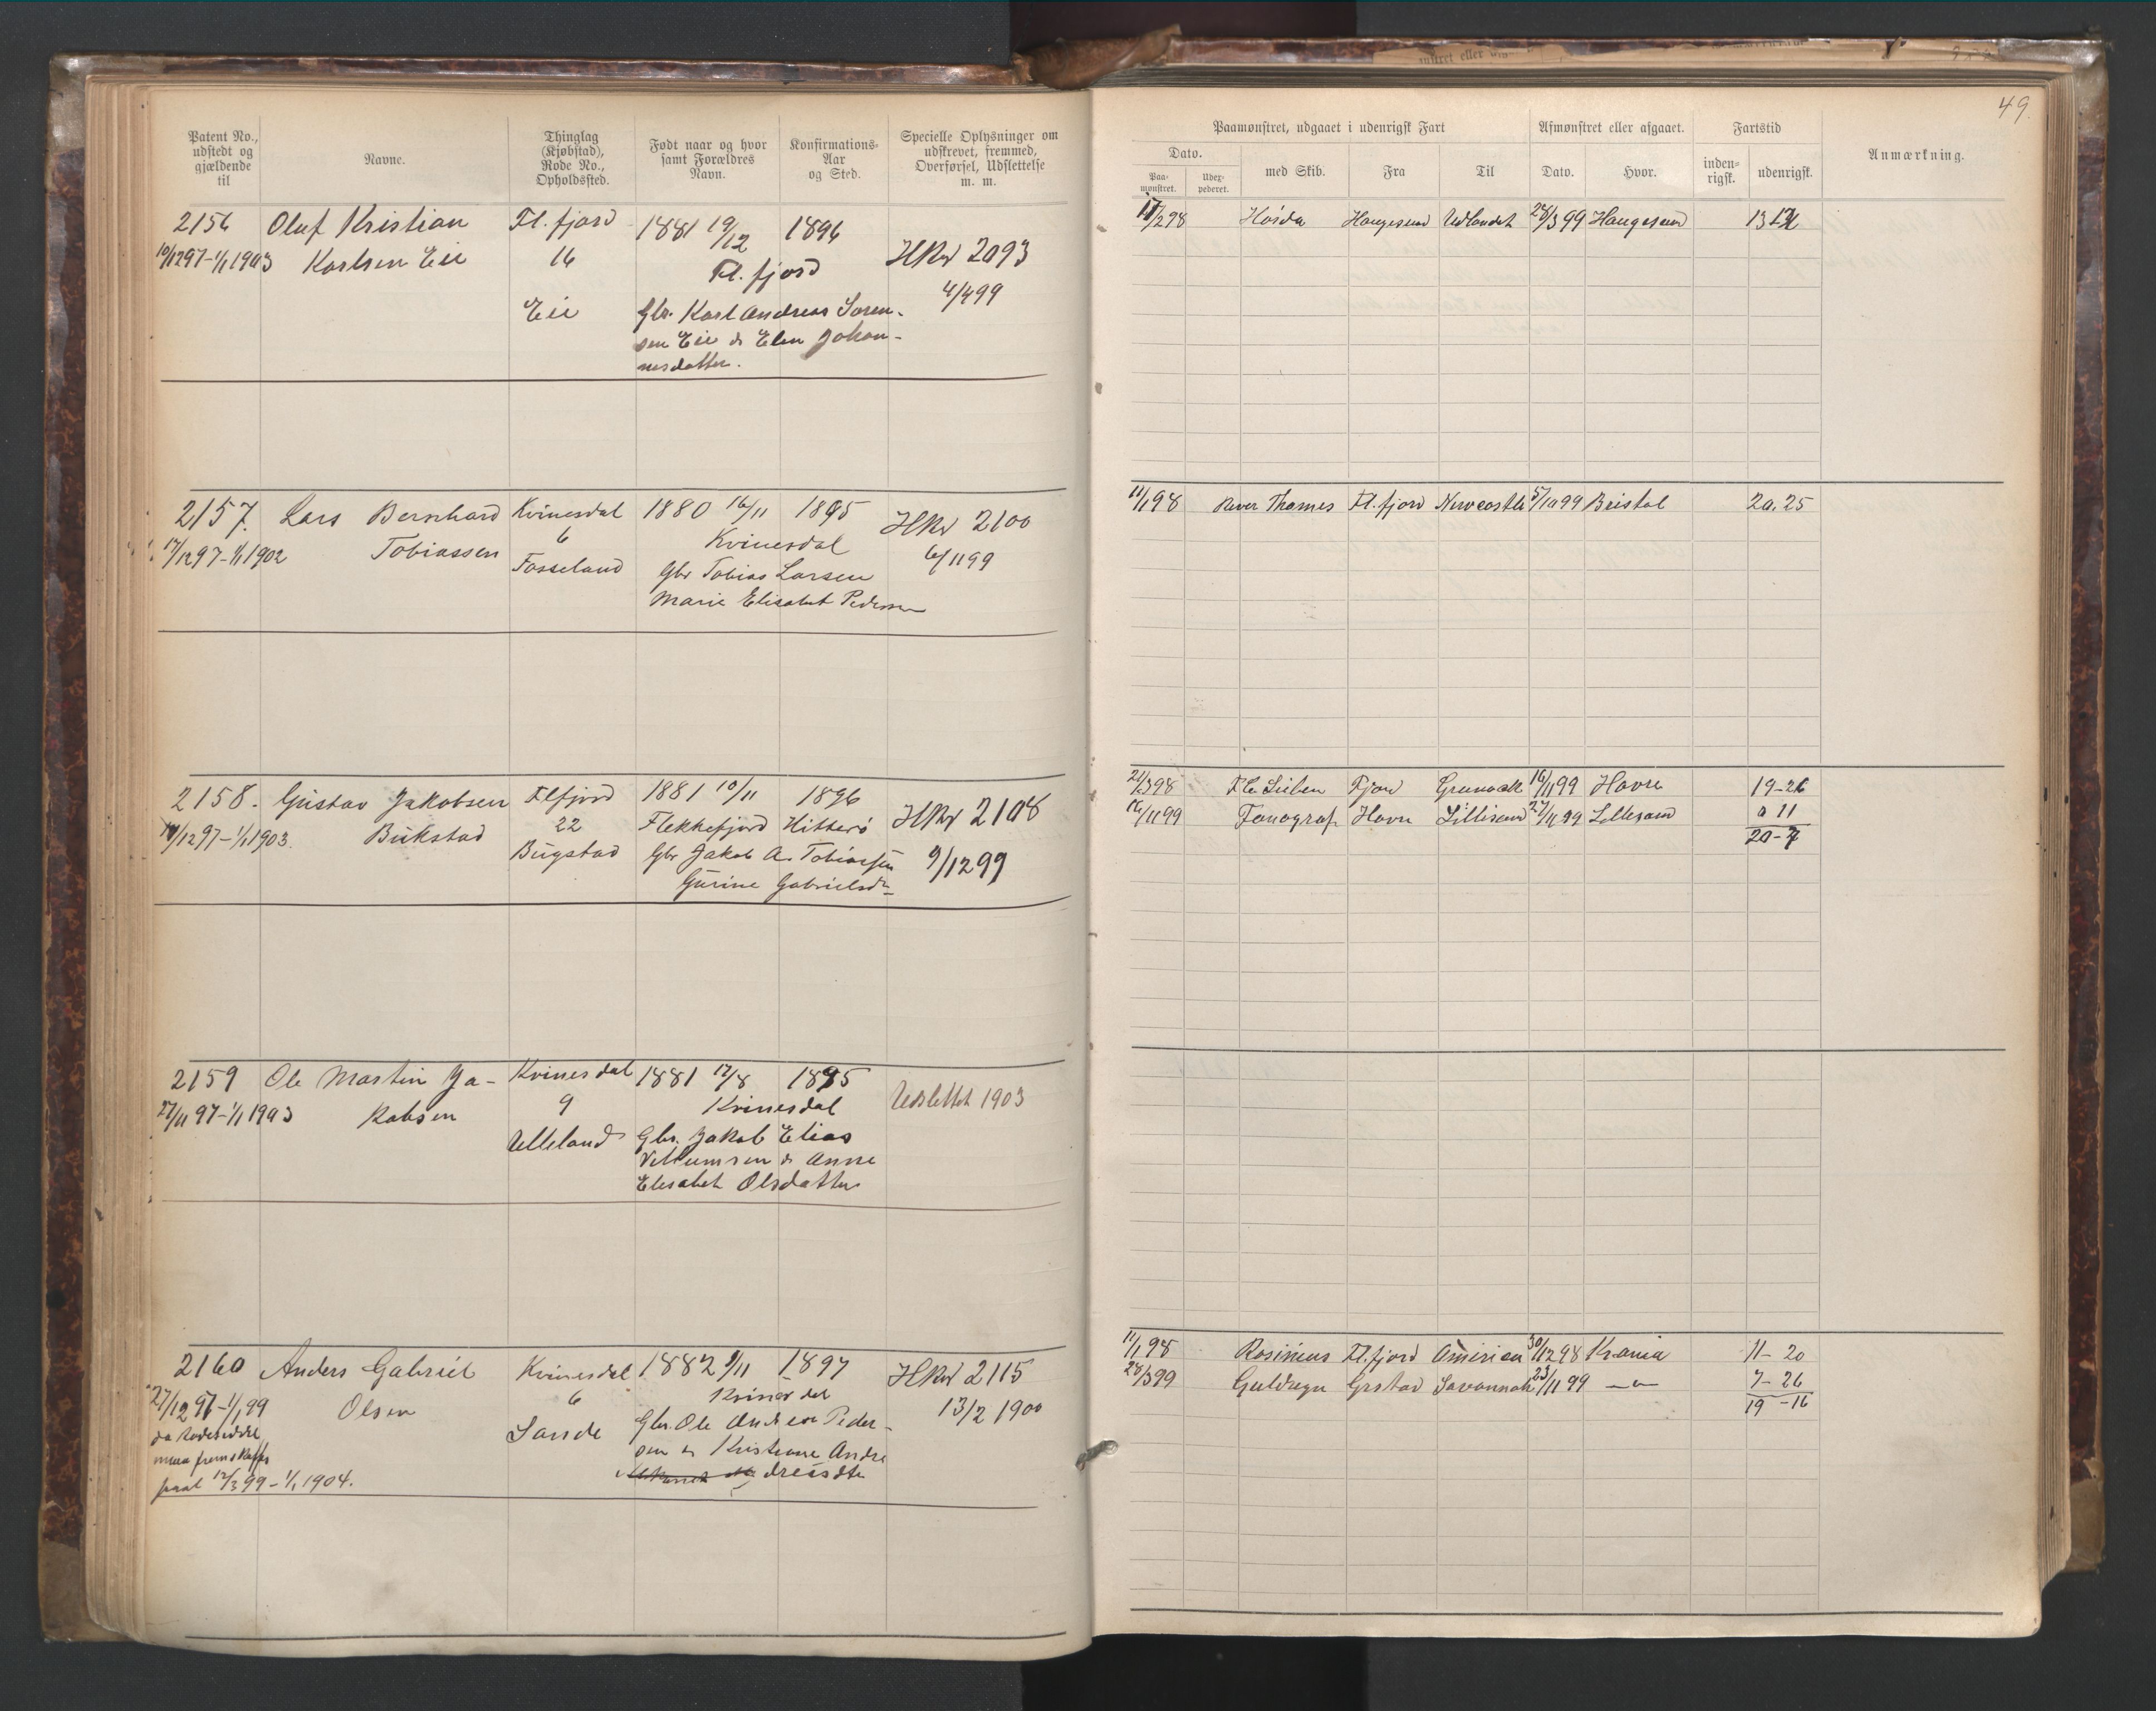 49.
Patent No., udstedt og gjældende til
Navne.
Thinglag (Kjøbstad), Rode No., Opholdssted.
Født naar og hvor samt Forældres Navn.
Konfirmations-Aar og Sted.
Specielle Oplysninger om udskrevet, fremmed, Overførsel, Udslettelse m. m.
Paamønstret, udgaaet i udenrigsk Fart
Afmønstret eller afgaaet.
Fartstid
Anmærkning.
Dato.
Paa-mønstret.
Udex-pederet.
med Skib.
Fra
Til
Dato.
Hvor.
inden-rigsk.
udenrigsk.
2156 Oluf Kristian Fl. fjord 1881 19/12 1896
10/12 97 – 1/1 1903 Karlsen Eie 16 Fl. fjord HRv 2093
Eie Gbr. Karl Andreas Soren- 4/4 99
sen Eie & Elen Johan-
nesdatter.
17/2 98 Haugesund Udlandet 28/3 99 Haugesund
2157. Lars Bernhard Kvinesdal 1880 16/11 1895 HRv 2100
17/12 97 – 1/1 1902 Tobiassen 6 Kvinesdal 6/11 99
Fosseland Gbr Tobias Larsen
Marie Elisabet Pedersen
11/1 98 River Thames Fl. fjord Newcastle 5/10 99 Bristol 20.25
2158. Gustav Jakobsen Flfjord 1881 10/11 1896 HRv 2108
1/1 1903. Bukstad 22 Flekkefjord Hitterö
Bugstad Gbr Jakob A. Tobiassen 9/12 99
Gurine Gabrielsdr
21/3 98 Fjord 16/11 99 Havre 19-26
16/11 99 Fonograf Havre Lillesand 27/11 99 Lillesand 0 11
20-7
2159 Ole Martin Ja- Kvinesdal 1881 12/8 1895
27/11 97 – 1/1 1903 kobsen 9 Kvinesdal Udslettet 1903
Ulleland Gbr. Jakob Elias
Villumsen & Anne
Elisabet Olsdatter
2160 Anders Gabriel Kvinesdal 1882 9/11 1897 HRv 2115
27/12 97 – 1/1 99 Olsen 6 Kvinesdal 13/2 1900
da
maa fremskaffes
12/3 99 – 1/1 1904.
Sande Gbr. Ole Andreas Peder-
sen & Kristiane Andre
dreasdtr
11/1 98 Rosinius Fl. fjord 30/12 98 Krania 11-20
28/3 99 Guldregn Grstad Savannah 23/11 99 —„— 7-26
19-16